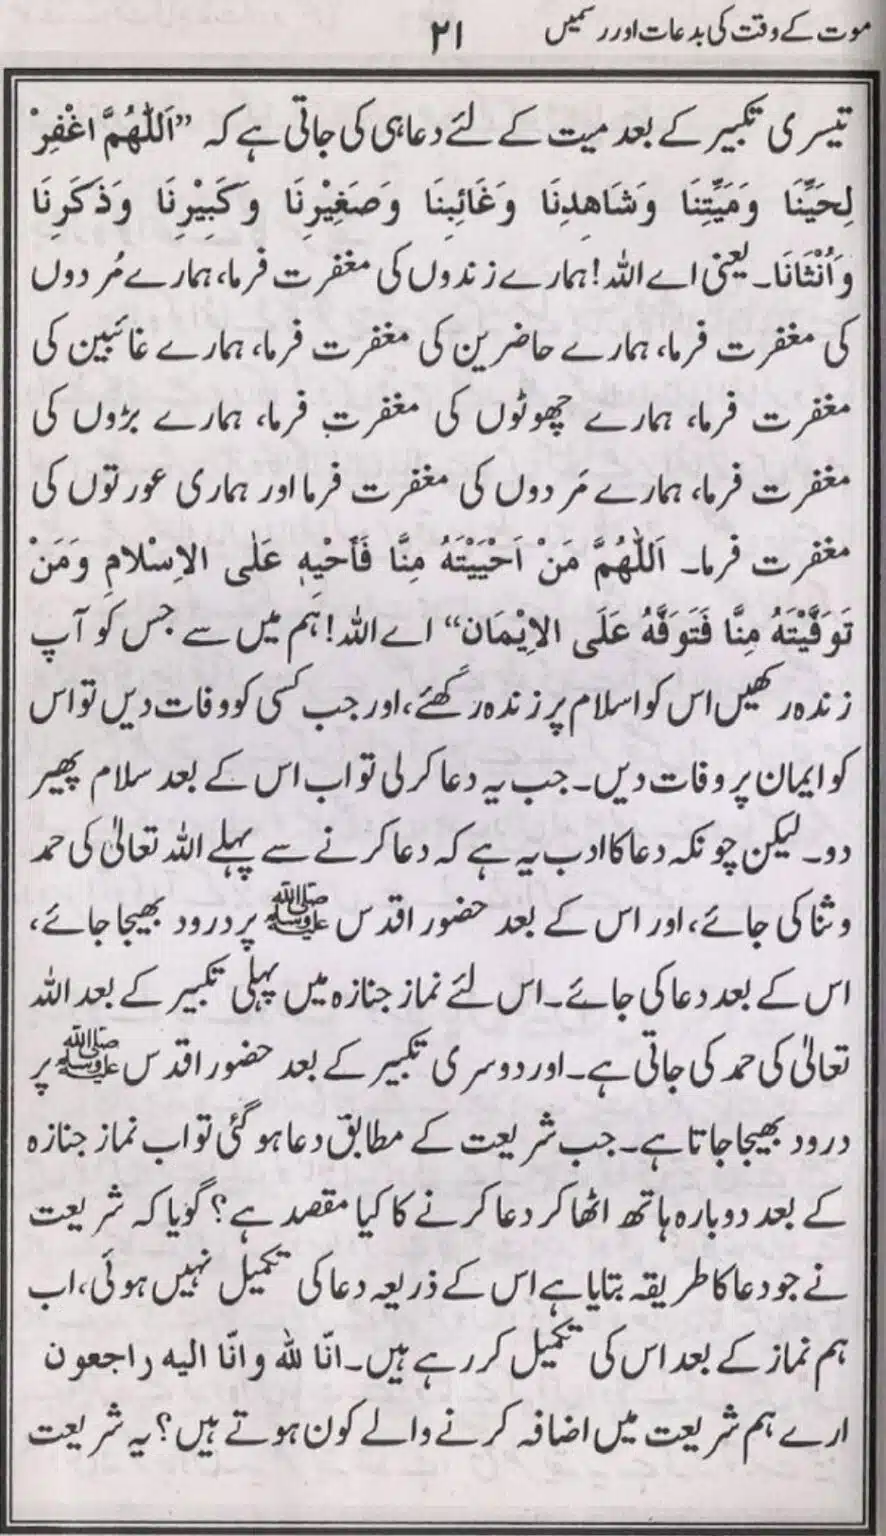 موت کے وقت کی بدعات اور رسمیں
۲۱
تیسری تکبیر کے بعد میت کے لئے دعا ہی کی جاتی ہے کہ ”اَللّٰهُمَّ اغْفِرْ
لِحَيِّنَا وَمَيِّتِنَا وَشَاهِدِنَا وَغَائِبِنَا وَصَغِيْرِنَا وَكَبِيْرِنَا وَذَكَرِنَا
وَاُنْثَانَا۔ یعنی اے اللہ! ہمارے زندوں کی مغفرت فرما، ہمارے مُردوں
کی مغفرت فرما، ہمارے حاضرین کی مغفرت فرما، ہمارے غائبین کی
مغفرت فرما، ہمارے چھوٹوں کی مغفرت فرما، ہمارے بڑوں کی
مغفرت فرما، ہمارے مَردوں کی مغفرت فرما اور ہماری عورتوں کی
مغفرت فرما۔ اَللّٰهُمَّ مَنْ اَحْيَيْتَهُ مِنَّا فَاَحْيِهٖ عَلٰى الاِسْلامِ وَمَنْ
تَوَفَّيْتَهُ مِنَّا فَتَوَفَّهُ عَلَى الاِيْمَان“ اے اللہ! ہم میں سے جس کو آپ
زندہ رکھیں اس کو اسلام پر زندہ رکھئے، اور جب کسی کو وفات دیں تو اس
کو ایمان پر وفات دیں۔ جب یہ دعا کر لی تو اب اس کے بعد سلام پھیر
دو۔ لیکن چونکہ دعا کا ادب یہ ہے کہ دعا کرنے سے پہلے اللہ تعالیٰ کی حمد
و ثنا کی جائے، اور اس کے بعد حضور اقدس ﷺ پر درود بھیجا جائے،
اس کے بعد دعا کی جائے۔ اس لئے نماز جنازہ میں پہلی تکبیر کے بعد اللہ
تعالیٰ کی حمد کی جاتی ہے۔ اور دوسری تکبیر کے بعد حضور اقدس ﷺ پر
درود بھیجا جاتا ہے۔ جب شریعت کے مطابق دعا ہو گئی تو اب نماز جنازہ
کے بعد دوبارہ ہاتھ اٹھا کر دعا کرنے کا کیا مقصد ہے؟ گویا کہ شریعت
نے جو دعا کا طریقہ بتایا ہے اس کے ذریعہ دعا کی تکمیل نہیں ہوئی، اب
ہم نماز کے بعد اس کی تکمیل کر رہے ہیں۔ انّا للّٰہ و انّا الیہ راجعون
ارے ہم شریعت میں اضافہ کرنے والے کون ہوتے ہیں؟ یہ شریعت